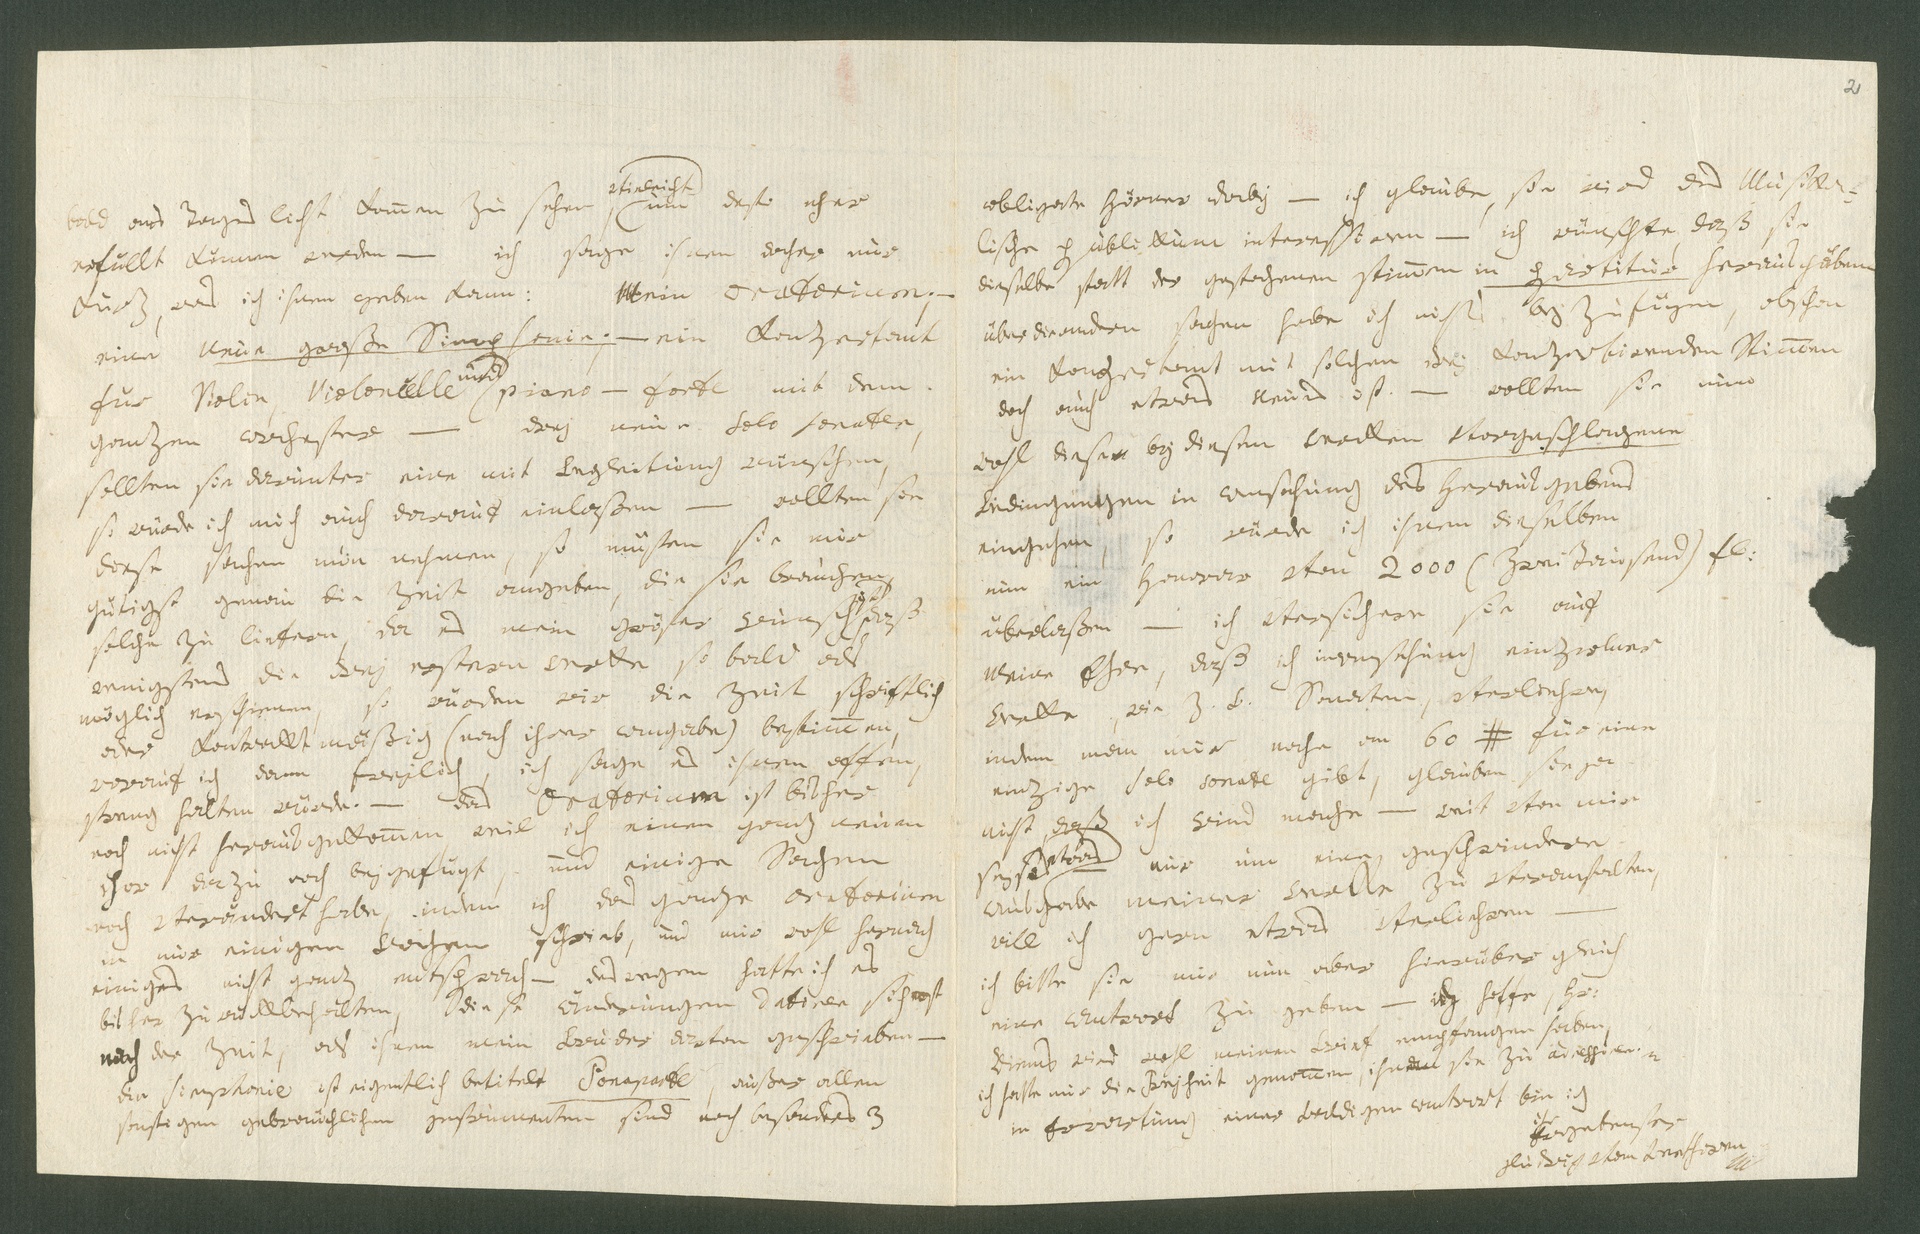 2
bald ans Tages licht kommen zu sehen, vieleicht um desto eher
erfüllt können werden — ich sage ihnen daher nur
kurz, was ich ihnen geben kann: Mein Oratorium; —
eine Neue große Simphonie; — ein Konzertant
für Violin, Violoncelle und piano-forte mit dem
ganzen orchester — drej neue Solo sonaten,
sollten sie darunter eine mit Begleitung wünschen,
so würde ich mich auch darauf einlaßen — wollten sie
diese sachen nun nehmen, so müßten sie mir
gütigst genau die Zeit angeben, die sie brauchen,
solche zu liefern, da es mein gröster Wunsch ist, daß
wenigstens die drej ersteren Werke so bald als
möglich erschienen, so würden wir die Zeit schriftlich
oder Kontracktmäßig (nach ihrer angabe) bestimmen,
worauf ich dann freylich, ich sage es ihnen offen,
streng halten würde. — das Oratorium ist bisher
noch nicht herausgekommen weil ich einen ganz neuen
chor dazu noch bejgefügt, und einige Sachen
noch verändert habe, indem ich das ganze oratorium
in nur einigen wochen schrieb, und mir wohl hernach
einiges nicht ganz entsprach — deswegen hatte ich es
bisher zurückbehalten, diese Änderungen datiren sich erst
nach der Zeit, als ihnen mein Bruder davon geschrieben —
die Simphonie ist eigentlich betitelt Ponaparte, außer allen
sonstigen gebräuchlichen instrumenten sind noch besonders 3
obligate Hörner dabej — ich glaube, sie wird das Musika-
lische publikum interessiren — ich wünschte, daß sie
dieselbe statt der gestochenen stimmen in partitur herausgäben
über die andern sachen habe ich nichts bejzufügen, obschon
ein Konzertant mit solchen drej Konzertirenden Stimmen
doch auch etwas Neues ist. — wollten sie nun
wohl diese bej diesen werken vorgeschlagene
Bedingungen in ansehung des Herausgebens
eingehen, so würde ich ihnen dieselben
um ein Honorar von 2000 (zweitausend) fl:
überlaßen — ich versichere sie auf
Meine Ehre, daß ich in ansehung einzelner
Werke, wie z. b. Sonaten, verliehre,
indem man mir nahe an 60 # für eine
einzige Solo sonate gibt, glauben sie ja
nicht, daß ich Wind mache — weit von mir
sey so etwas nur um eine geschwindere
ausgabe meiner Werke zu veranstalten,
will ich gern etwas verliehren —
ich bitte sie mir nun aber hierüber gleich
eine Antwort zu geben — ich hoffe, Hr:
wird wohl meinen Brief empfangen haben,
ich hatte mir die Frejheit genommen, ihn an sie zu adressiren
in Erwartung einer baldigen antwort bin ich
ihr Ergebenster
Ludwig van Beethowen